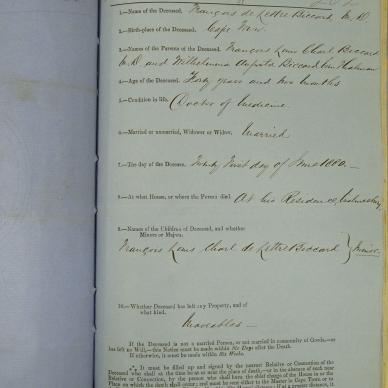 1.—Name of the Deceased. François de Lettre Biccard, M.D.
2.—Birth-place of the Deceased. Cape Town
3.—Names of the Parents of the Deceased. François Louis Charl Biccard
M.D. and Wilhelmina Biccard, born
4.—Age of the Deceased. Forty years and two months
5.—Condition in life. Doctor of Medicine
6.—Married or unmarried, Widower or Widow. Married
7.—The day of the Decease. Twenty first day of June 1880.—
8.—At what House, or where the Person died. At his Residence, Malmesbury
9.—Names of the Children of Deceased, and whether
Minors or Majors.
François Louis Charl de Lettre Biccard } Minor.
10.—Whether Deceased has left any Property, and of
what kind.
Moveables —
If the Deceased is not a married Person, or not married in community of Goods,—or
has left no Will,—this Notice must be made within Six Days after the Death.
If otherwise, it must be made within Six Weeks.
It must be filled up and signed by the nearest Relative or Connexion of the
Deceased who shall at the time be at or near the place of death,—or in the absence of such near
Relative or Connexion, by the person who shall have the chief charge of the House in or the
Place on which the death shall occur; and must be sent either to the Master in Cape Town or to